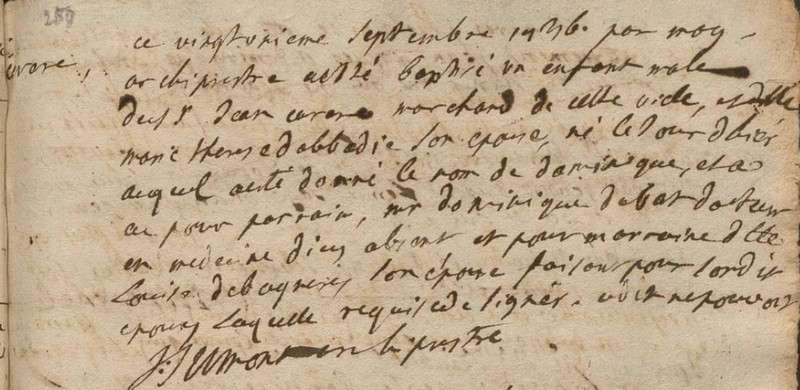 288
ce vingtunieme septembre 1736. par moy
archiprestre a esté baptisé un enfant male
du Sr Jean carere marchand de cette ville, et dlle
marie therese dabbadie son epouse, né le jour dhier
auquel a esté donné le nom de dominique, et a
eu pour parrain, mr dominique debat docteur
en medecine dicy absent et pour marraine dlle
Louise debagneris son épouse faisant pour sondit
epoux laquelle requise de signer. a dit ne pouvoir
archiprestre